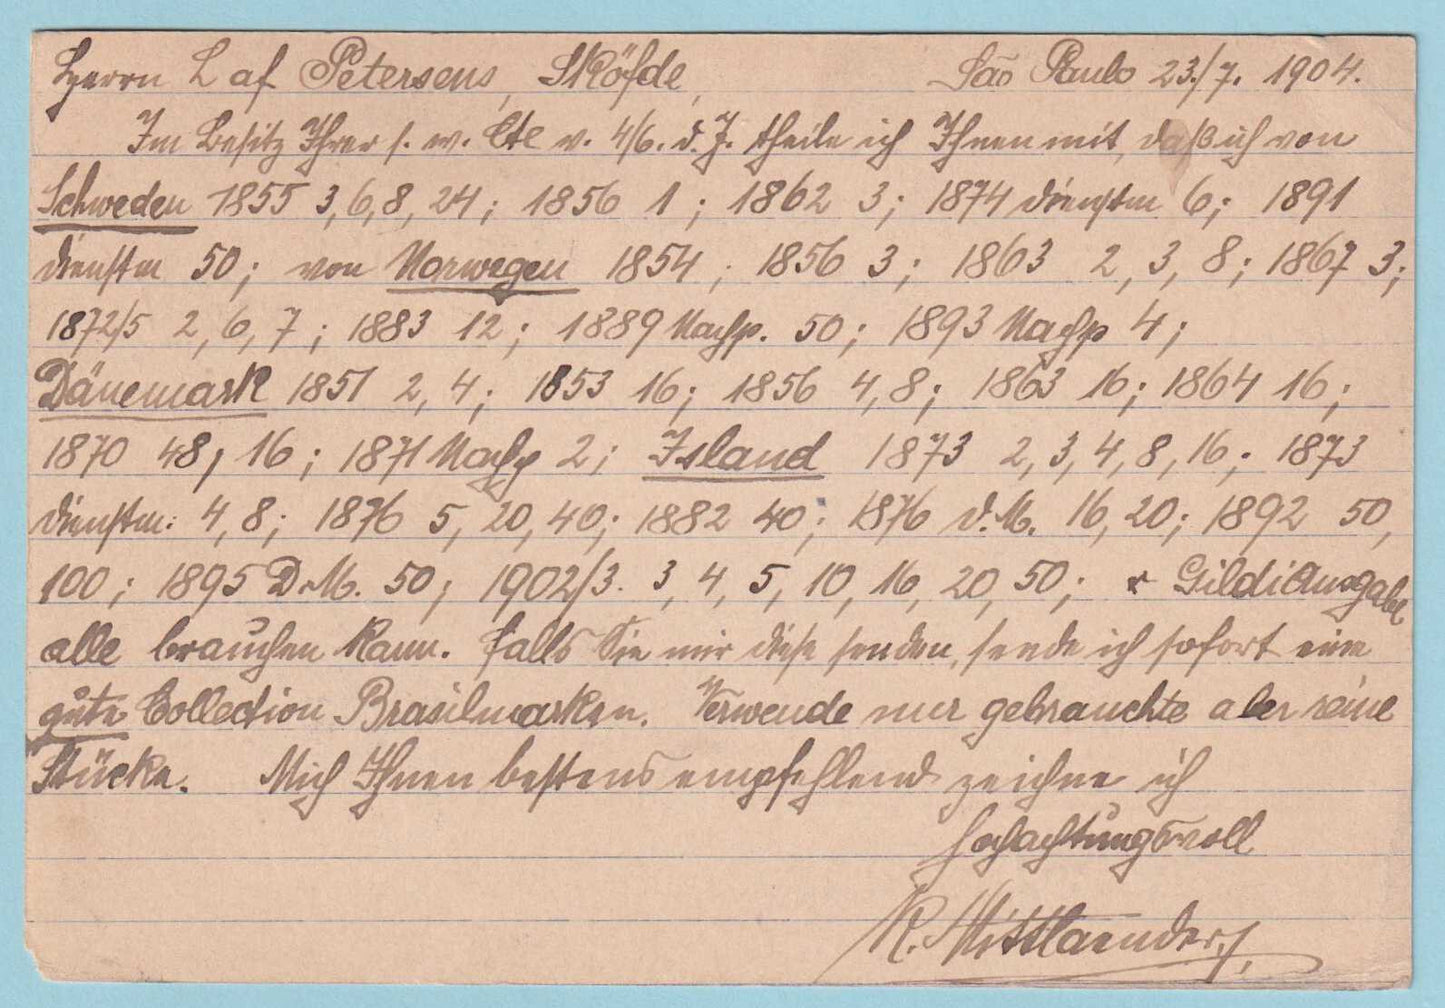 Herrn L af Petersens, Sköfde, São Paulo 23./7. 1904.
Im Besitz Ihrer s. w. Kte v. 4/6. d. J. theile ich Ihnen mit, daß ich von
Schweden 1855 3, 6, 8, 24; 1856 1; 1862 3; 1874 dienstm 6; 1891
dienstm 50; von Norwegen 1854; 1856 3; 1863 2, 3, 8; 1867 3;
1872/5 2, 6, 7; 1883 12; 1889 Nachp. 50; 1893 Nachp 4;
Dänemark 1851 2, 4; 1853 16; 1856 4, 8; 1863 16; 1864 16;
1870 48, 16; 1871 Nachp 2; Island 1873 2, 3, 4, 8, 16; 1873
dienstm: 4, 8; 1876 5, 20, 40; 1882 40; 1876 d. M. 16, 20; 1892 50,
100; 1895 D. M. 50; 1902/3. 3, 4, 5, 10, 16, 20, 50; Gildi Ausgabe
alle brauchen kann. Falls Sie mir diese senden, sende ich sofort eine
gute Collection Brasilmarken. Verwende nur gebrauchte aber reine
Stücke. Mich Ihnen bestens empfehlend zeichne ich
hochachtungsvoll
R. Mittlaender